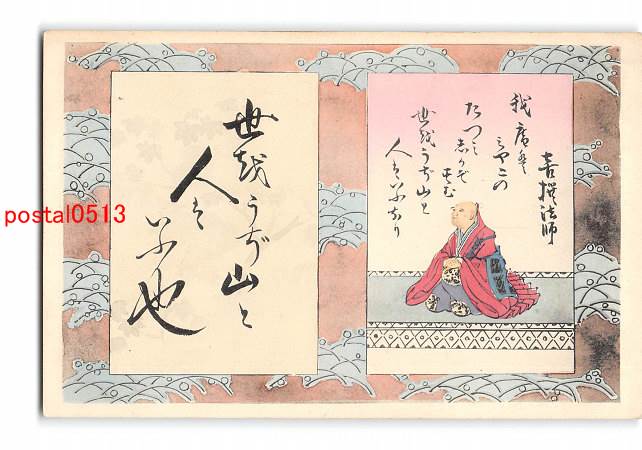 喜撰法師
我庵は
みやこの
たつみ
しかぞすむ
世越うぢ山と
人はいふなり
世越うぢ山と
人は
いふ也
postal0513